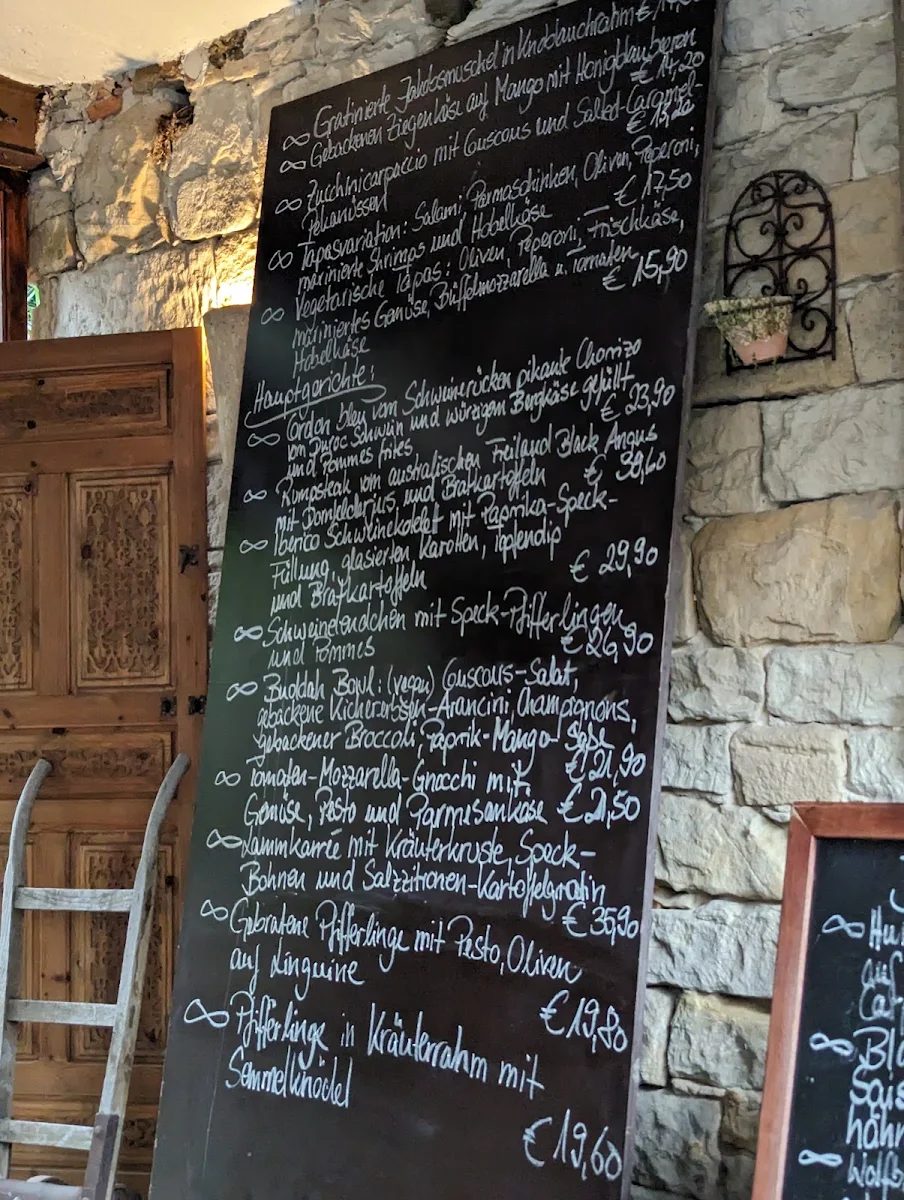 ∞ Gratinierte Jakobsmuschel in Knoblauchrahm
∞ Gebackenen Ziegenkäse auf Mango mit Honigblaubeeren
€ 14,20
∞ Zucchinicarpaccio mit Couscous und Salted-Caramel-
Pekanüssen € 13,20
∞ Tapasvariation: Salami, Parmaschinken, Oliven, Peperoni,
marinierte Shrimps und Hobelkäse € 17,50
∞ Vegetarische Tapas: Oliven, Peperoni, Frischkäse,
mariniertes Gemüse, Büffelmozzarella u. Tomaten
Hobelkäse € 15,90
Hauptgerichte:
∞ Cordon bleu vom Schweinerücken pikante Chorizo
vom Duroc Schwein und würzigen Bergkäse gefüllt
und Pommes frites € 23,90
∞ Rumpsteak vom australischen Freiland Black Angus
mit und Bratkartoffeln € 39,60
∞ Iberico Schweinekotelet mit Paprika-Speck-
Füllung, glasierten Karotten, Topfendip
und Bratkartoffeln € 29,90
∞ Schweinelendchen mit Speck-Pfifferlingen
und Pommes € 24,90
∞ Buddah Bowl: (vegan) Couscous-Salat,
gebackene Kichererbsen-Arancini, Champignons,
gebackener Broccoli, Paprik-Mango-
€ 21,90
∞ Tomaten-Mozzarella-Gnocchi mit
Gemüse, Pesto und Parmesankäse € 21,50
∞ Lammkarrie mit Kräuterkruste, Speck-
Bohnen und Salzzitronen-Kartoffelgratin
€ 35,90
∞ Gebratene Pfifferlinge mit Pesto, Oliven
auf Linguine
€ 19,80
∞ Pfifferlinge in Kräuterrahm mit
Semmelknödel
€ 19,60
∞
auf
∞
∞